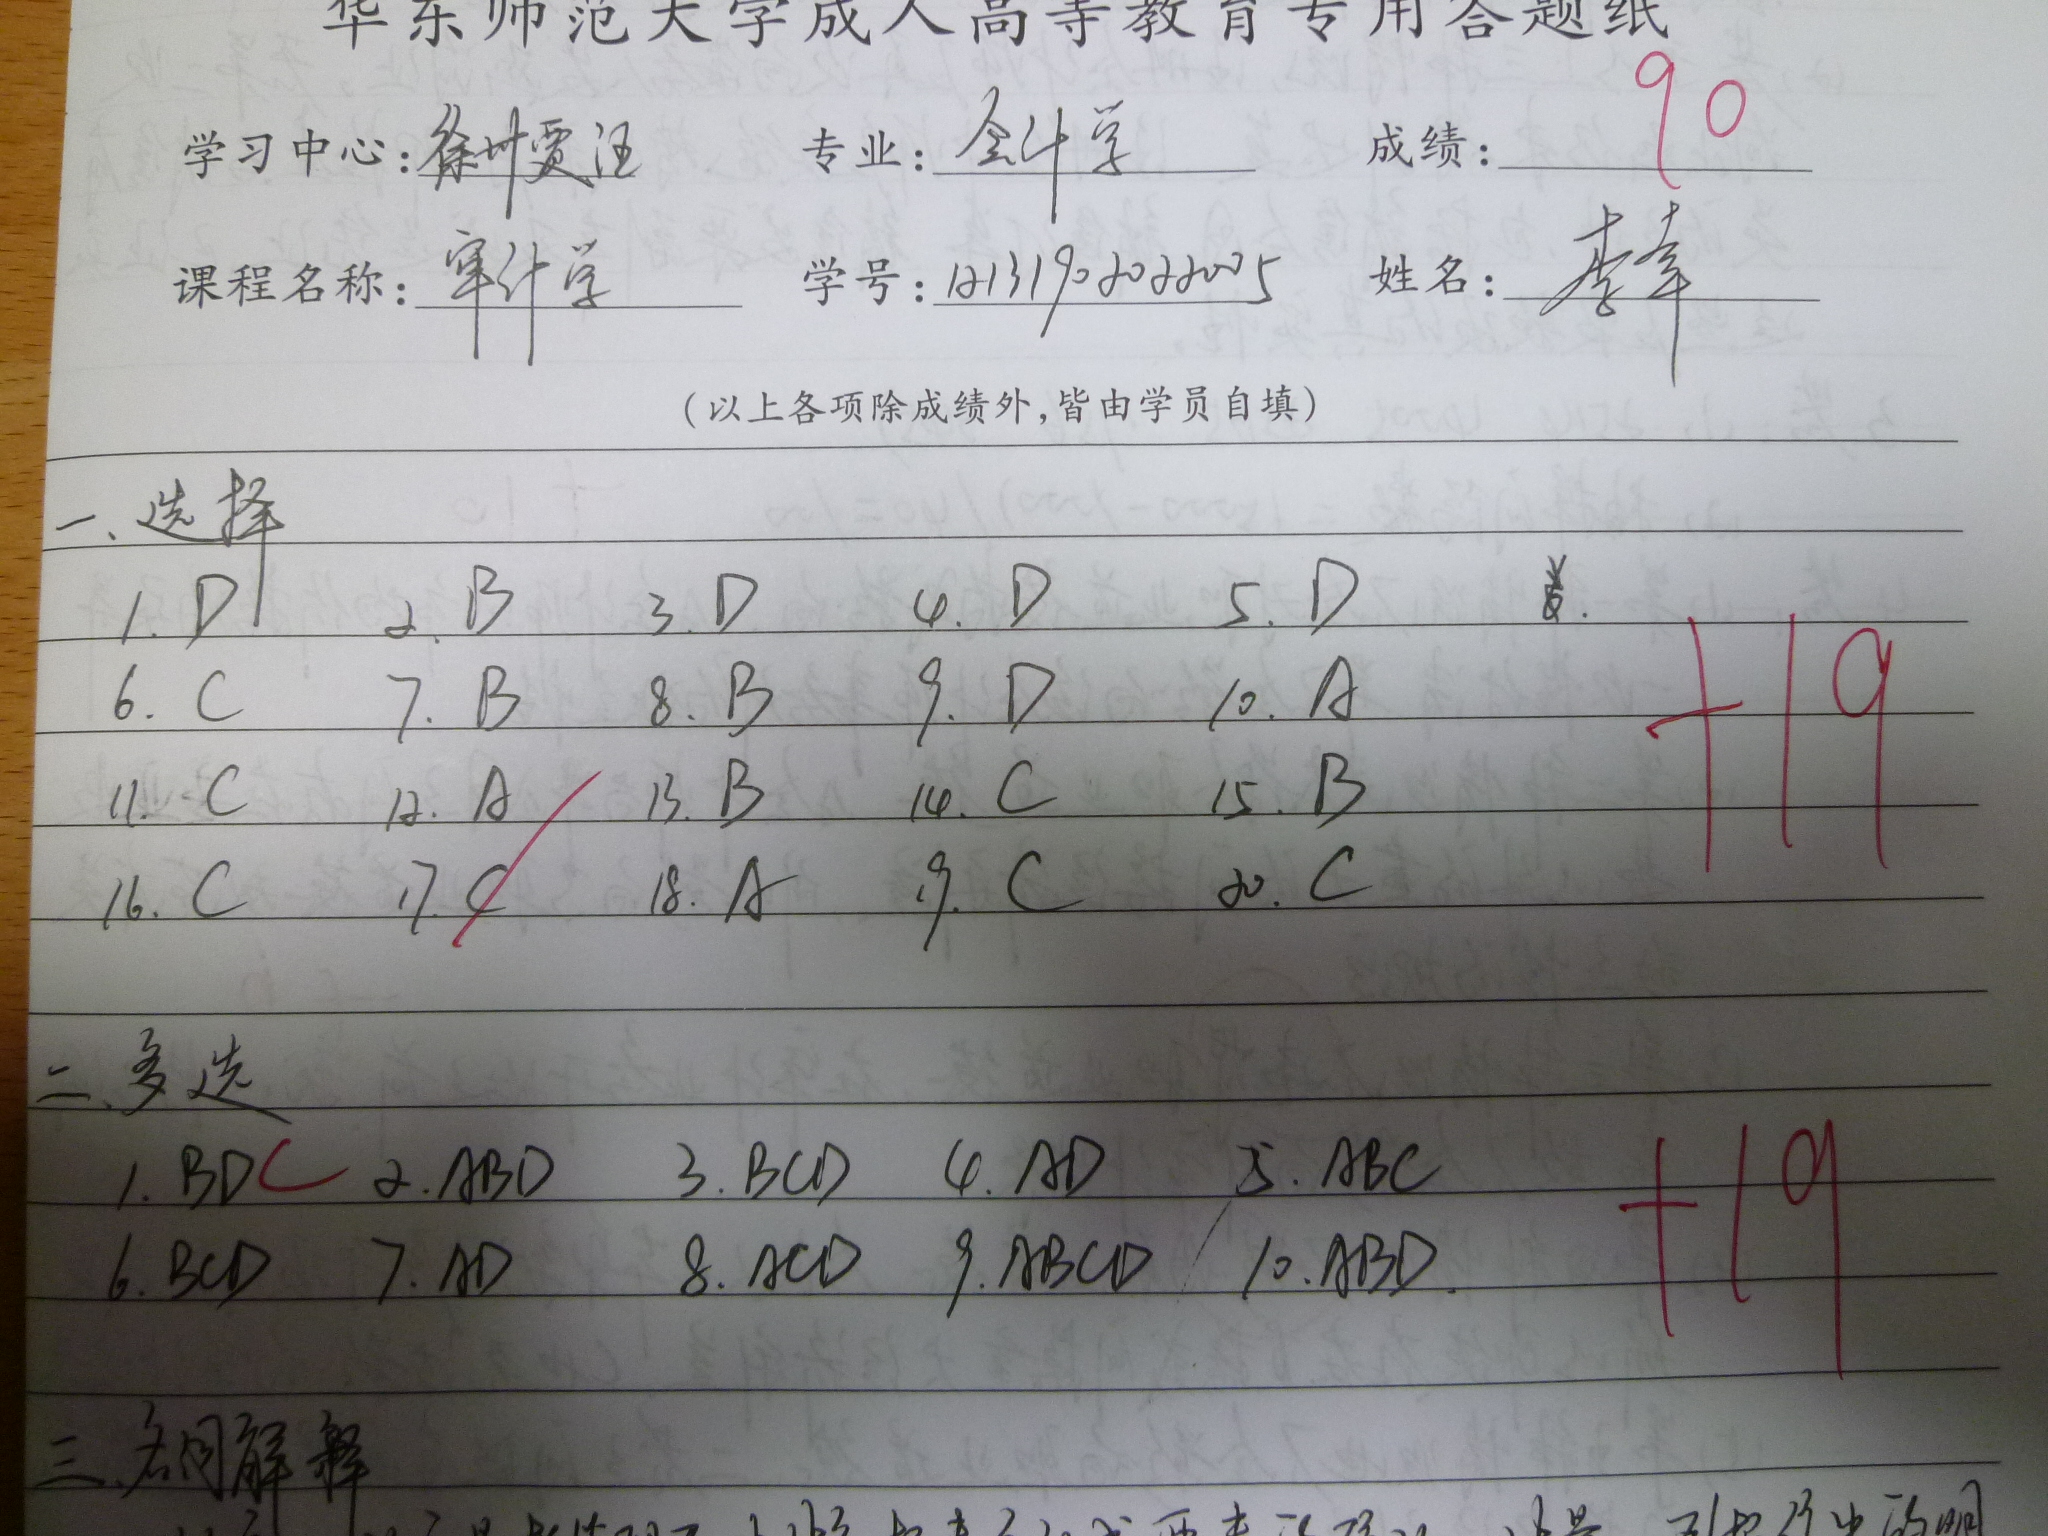 华东师范大学成人高等教育专用答题纸
学习中心：徐州贾汪 专业：会计学 成绩：90
课程名称：审计学 学号：12131902022005 姓名：李幸
（以上各项除成绩外，皆由学员自填）
一、选择
1. D 2. B 3. D 4. D 5. D
6. C 7. B 8. B 9. D 10. A
+19
11. C 12. A 13. B 14. C 15. B
16. C 17. C 18. A 19. C 20. C
二、多选
1. BDC 2. ABD 3. BCD 4. AD 5. ABC
+19
6. BCD 7. AD 8. ACD 9. ABCD 10. ABD.
三、名词解释